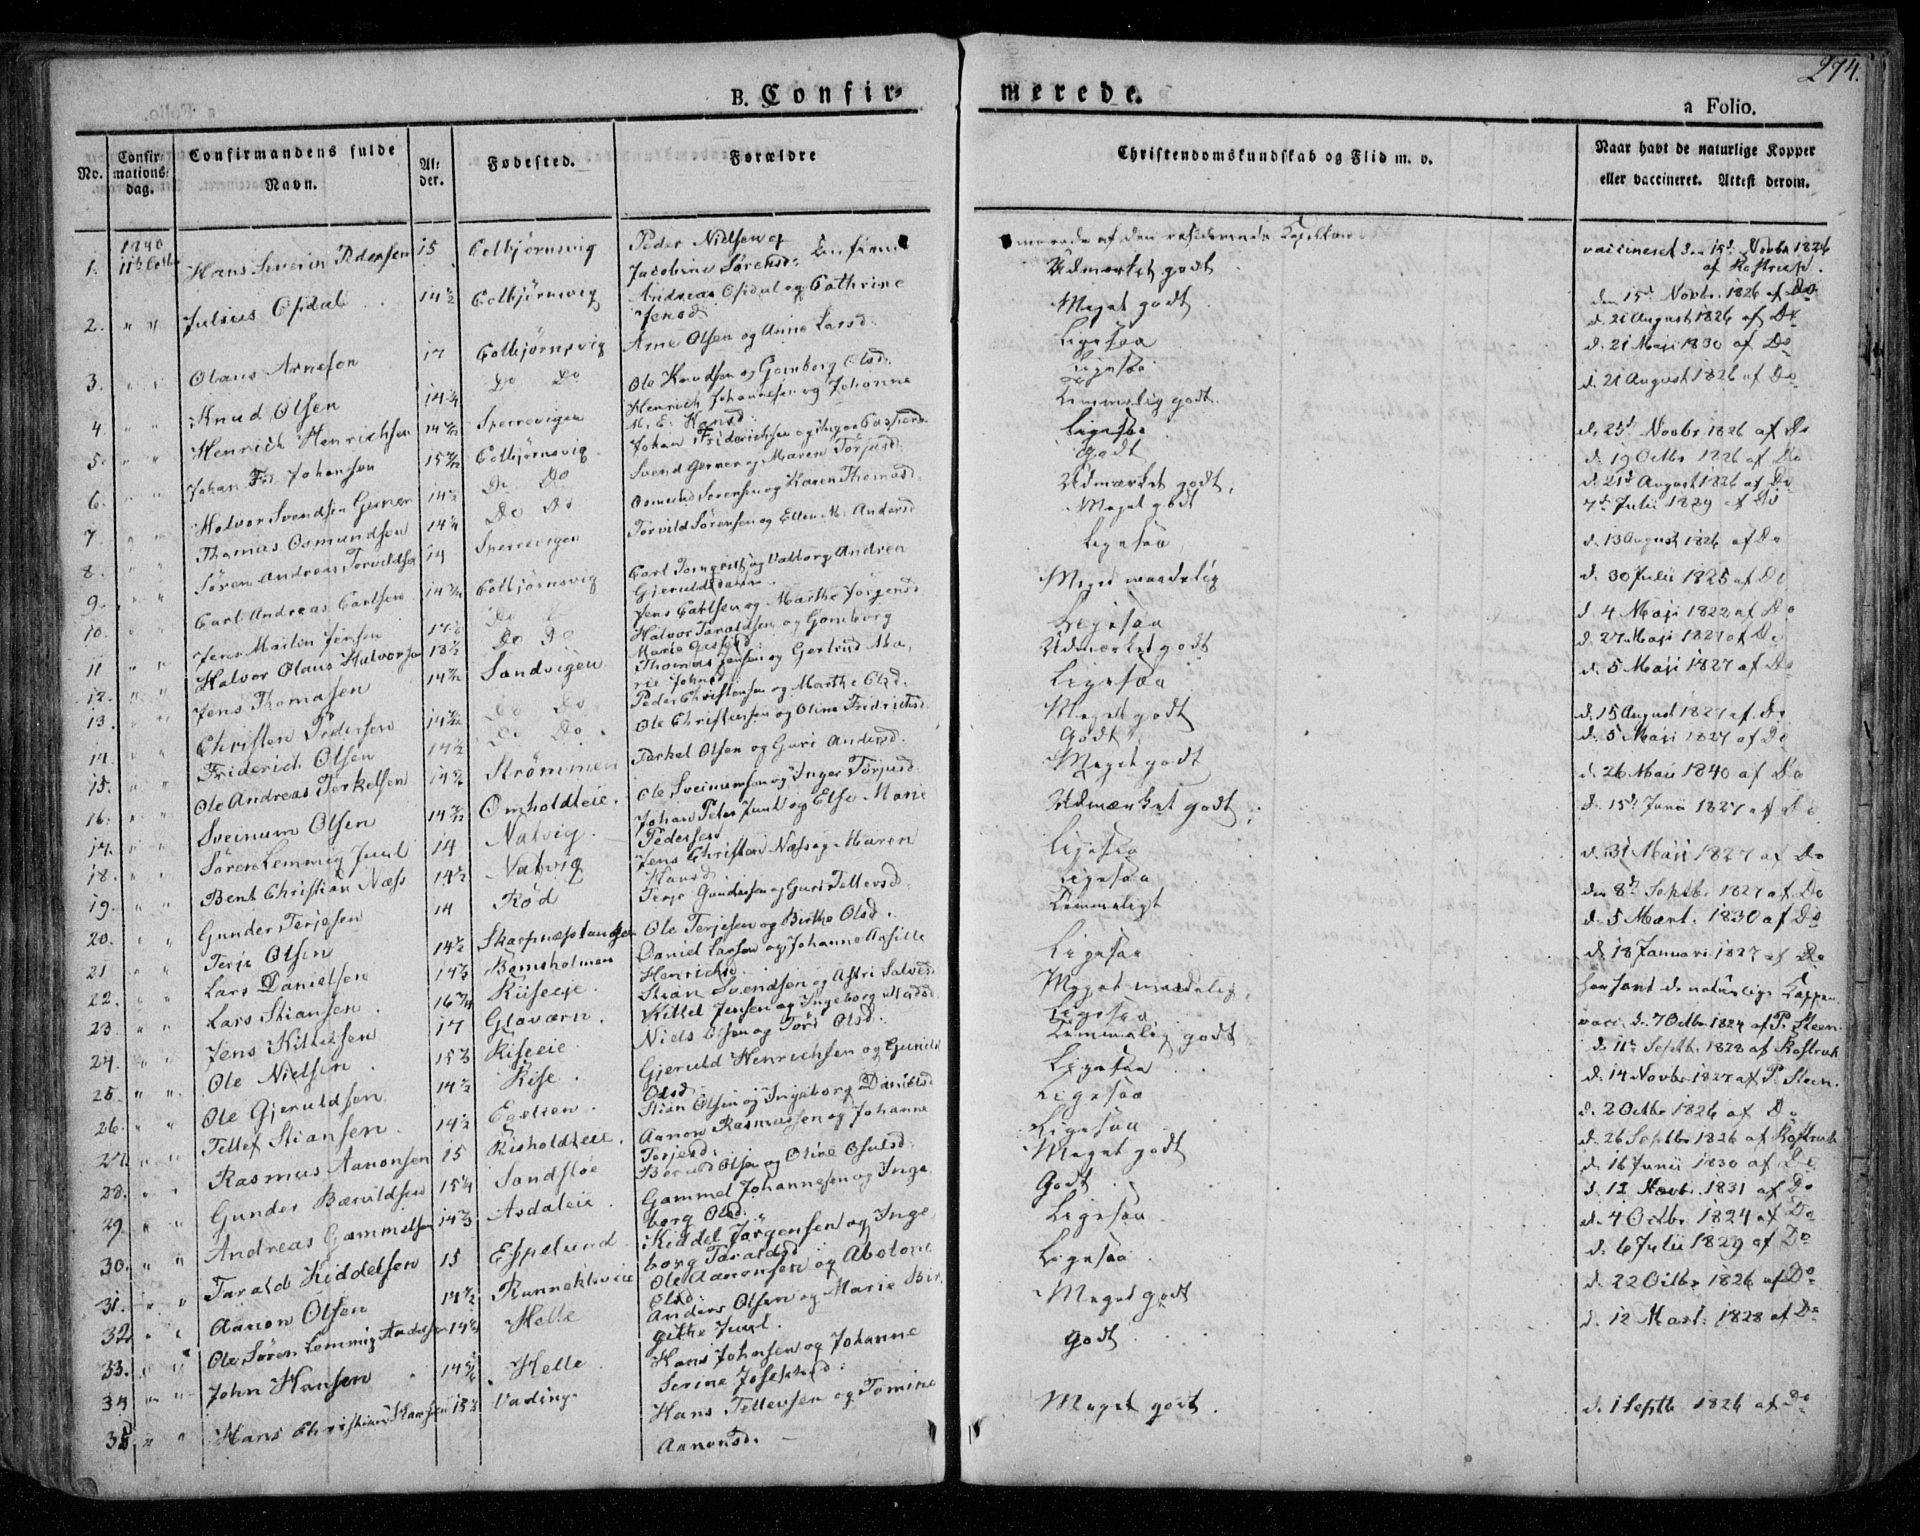 274.
B. Confir-
merede.
a Folio.
No.
Confir-
mations-
dag.
Confirmandens fulde
Navn.
Al-
der.
Fødested.
Forældre
Christendomskundskab og Flid m. v.
Naar havt de naturlige Kopper
eller vaccineret. Attest derom.
1840
1. 11te Octbr Hans Severin Pedersen 15 Colbjørnsvig Peder Nielsen og
Jacobine Sørensd:
merede af den residerende Capellan
Udmærket godt. vaccineret den 15d Novbr 1826
af Kostrup.
2. " " Julius Opdal 14 1/2 Colbjørnsvig Andreas Opdal og Cathrine
Jensd. Meget godt. den 15d Novbr. 1826 af Do
3. " " Olaus Arnesen 17 Colbjørnsvig Arne Olsen og Anne Larsd: Ligesaa d. 21 August 1826 af Do
4. " " Knud Olsen 14 1/4 Do Do Ole Knudsen og Gomborg Olsd: Ligesaa d. 21 Maji 1830 af Do
5. " " Henrich Henrichsen Sperrevigen Henrich Johannesen og Johanne
M. E. Hansd: Temmelig godt. d. 21 August 1826 af Do
6. " " Johan Fr. Johansen Colbjørnsvig Johan Friderichsen og Inger Caspers Ligesaa d. 25d Novbr 1826 af Do
7. " " Halvor Svendsen Gerner 14 1/2 Do Do Svend Gerner og Maren Torjusd: Godt d. 19 Octbr 1826 af Do
8. " " Thomas Osmundsen 14 1/4 Do Do Osmund Sørensen og Karen Thomasd: Udmærket godt. d. 21d August 1826 af Do
9. " " Søren Andreas Torvildsen Sperrevigen Torvild Sørensen og Ellen M. Andersd Meget godt 7d Julii 1829 af Do
10. " " Carl Andreas Carlsen Colbjørnsvig Carl Tornqvist og Valborg Andrea
Gjeruldsdatter. Ligesaa d. 13 August 1826 af Do
11 " " Jens Martin Jensen Do Do Jens Carlsen og Marthe Jørgensd Meget maadelig d. 30 Julii 1825 af Do
12. " " Halvor Olaus Halvorsen 18 1/2 Do Do Halvor Taraldsen og Gomborg
Marie Ligesaa d. 4 Maji 1822 af Do
13. " " Jens Thomasen Sandvigen Thomas Jensen og Gertrud Ma-
rie Johnsd. Udmærket godt d. 27 Maji 1827 af Do
14. " " Christen Pedersen Do Do Peder Christensen og Marthe Olsd. Ligesaa d. 5 Maji 1827 af Do
15. " " Friderich Olsen 14 1/2 Do Do. Ole Christensen og Oline Fridrichsd. Meget godt d. 15 August 1827 af Do
16. " " Ole Andreas Terkelsen Strømmen Terkel Olsen og Guri Andersd. Godt. d. 5 Maji 1827 af Do
17. " " Sveinum Olsen Omholdteie. Ole Sveinumsen og Inger Torjusd. Meget godt d. 26 Maii 1840 af Do
18. " " Søren Lemmig Juul 14 Natvig Johan Peter Juul og Else Marie
Pedersd Udmærket godt. d. 15d Juni 1827 af Do
19. " " Bent Christian Næss 14 1/2 Natvig Jens Christian Næss og Maren
Hansd. Ligesaa d. 31 Maji 1827 af Do
20. " " Gunder Terjesen 14 Rød Terje Gundersen og Guri Tellevsd. Ligesaa den 8d Septbr 1827 af Do
21 " " Terje Olsen 14 1/2 Skarpnæstangen Ole Terjesen og Birthe Olsd. Temmeligt d. 5 Mart. 1830 af Do
22. " " Lars Danielsen Bomsholmen Daniel Larsen og Johanne Aasille
Henrichsd. Ligesaa d. 18 Januari 1827 af Do
23 " " Lars Stiansen. Riiseeie. Stian Svendsen og Astri Salvesd. Meget maadelig, har havt de naturlige Kopper.
24. " " Jens Kittelsen 17 Glaværn. Kittel Jensen og Ingeborg Ligesaa vacci. d. 7 Octbr 1824 af P. Steen.
25. " " Ole Nielsen. Riseeie Niels Olsen og Tore Olsd: Temmelig godt d. 11te Septbr 1828 af Kostrup
26. " " Ole Gjeruldsen 14 1/2 Rise. Gjeruld Henrichsen og Gunild
Olsd Ligesaa d. 14 Novbr 1827 af P. Steen.
27. " " Tellef Stiansen. 14 1/2 Egelien. Stian Olsen og Ingeborg Danielsd Ligesaa d. 2 Octbr 1826 af Do
28. " " Rasmus Aanonsen 15 Risholdteie. Aanon Rasmussen og Johanne
Terjesd: Ligesaa d. 26 Septbr 1826 af Kostrup
29 " " Gunder Bæruldsen 15 1/4 Sandfløe Bæruld Olsen og Oline Meget godt d. 16 Junii 1830 af Do
30. " " Andreas Gammelsen Asdaleie. Gammel Johannesen og Inge
borg Olsd. Godt. d. 12 Novbr 1831 af Do
31. " " Tarald Kiddelsen 15 Espelund. Kiddel Jørgensen og Inge
borg Taraldsd Ligesaa d. 4 Octbr 1824 af Do
32 " " Aanon Olsen 14 1/2 Runnekleveie Ole Aanonsen og Abolone
Olsd: Ligesaa d. 6 Julii 1829 af Do
33. " " Ole Søren Lemmig Andersen Helle Anders Olsen og Marie Bir
githe Juul. Meget godt d. 22 Octbr 1826 af Do
34 " " John Hansen Helle Hans Johnsen og Johanne
Serine Josephsd: godt d. 12 Mart. 1828 af Do
35 " " Hans Christian Hansen Vading Hans Tellevsen og Tomine
Aanonsd. Meget godt. d. 1 Septbr 1826 af Do